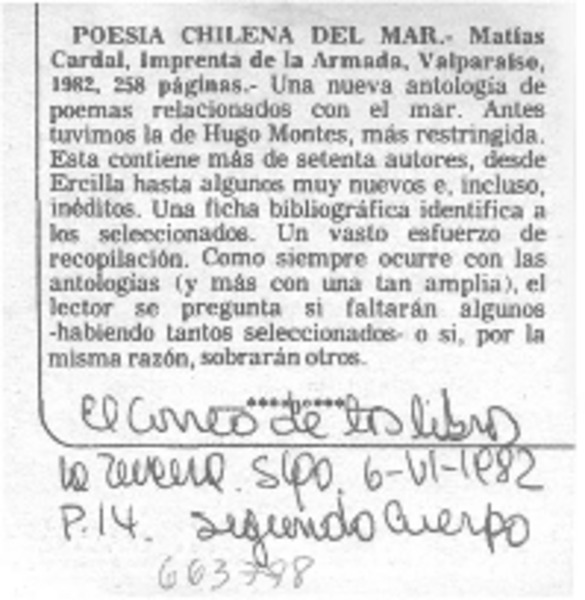 POESIA CHILENA DEL MAR.- Matías
Cardal, Imprenta de la Armada, Valparaíso,
1982, 258 páginas.- Una nueva antología de
poemas relacionados con el mar. Antes
tuvimos la de Hugo Montes, más restringida.
Esta contiene más de setenta autores, desde
Ercilla hasta algunos muy nuevos e, incluso,
inéditos. Una ficha bibliográfica identifica a
los seleccionados. Un vasto esfuerzo de
recopilación. Como siempre ocurre con las
antologías (y más con una tan amplia), el
lector se pregunta si faltarán algunos
-habiendo tantos seleccionados- o si, por la
misma razón, sobrarán otros.
El Correo de los libros
La Tercera. Stgo. 6-VI-1982
P.14. segundo Cuerpo
663798